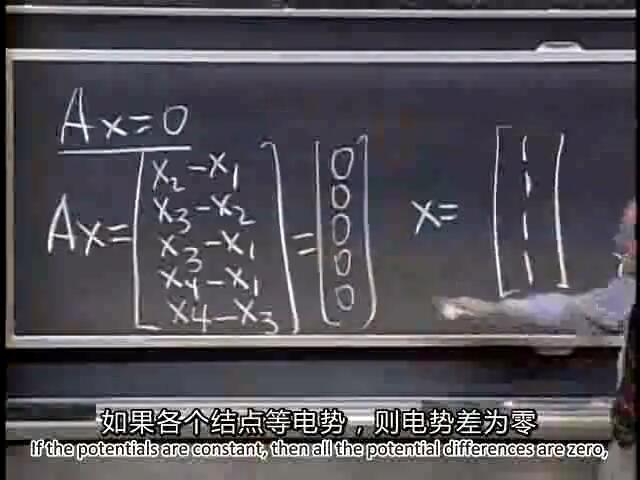 Ax=0
Ax= [ x₂-x₁ ] = [ 0 ] x= [ 1 ]
[ x₃-x₂ ] [ 0 ] [ 1 ]
[ x₃-x₁ ] [ 0 ] [ 1 ]
[ x₄-x₁ ] [ 0 ] [ 1 ]
[ x₄-x₃ ] [ 0 ]
如果各个结点等电势，则电势差为零
If the potentials are constant, then all the potential differences are zero,